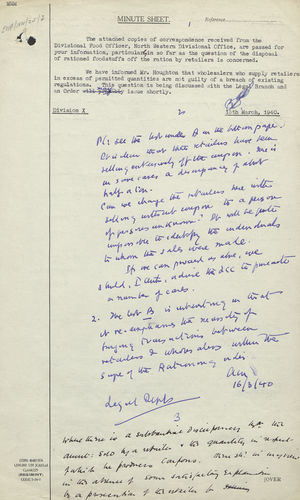 MINUTE SHEET.
Reference
The attached copies of correspondence received from the
Divisional Food Officer, North Western Divisional Office, are passed for
your information, particularly in so far as the question of the disposal
of rationed foodstuffs off the ration by retailers is concerned.
We have informed Mr. Houghton that wholesalers who supply retailers
in excess of permitted quantities are not guilty of a breach of existing
regulations. This question is being discussed with the Legal Branch and
an Order issue shortly.
Division X
15th March, 1940.
2
Pl. see the list under B in the bottom paper.
It is clear that these retailers have been
selling extensively off the coupon. There is
in some cases a discrepancy of about
half a ton.
Can we charge the retailers here with
selling without coupons to a person
or persons unknown? It will be quite
impossible to identify the individuals
to whom the sales were made.
If we can proceed as above, we
shld, I think, advise the DFO to prosecute
a number of cases.
2. The list B is interesting in that
it re-emphasises the necessity of
bringing transactions between
retailers & wholesalers within the
scope of the Rationing Order.
16/3/40
Legal Dept
3
Where there is a substantial discrepancy btn the
amount sold by a retailer & the quantity in respect
of which he produces coupons
in the absence of some satisfactory explanation
by a prosecution of the retailer for
[OVER